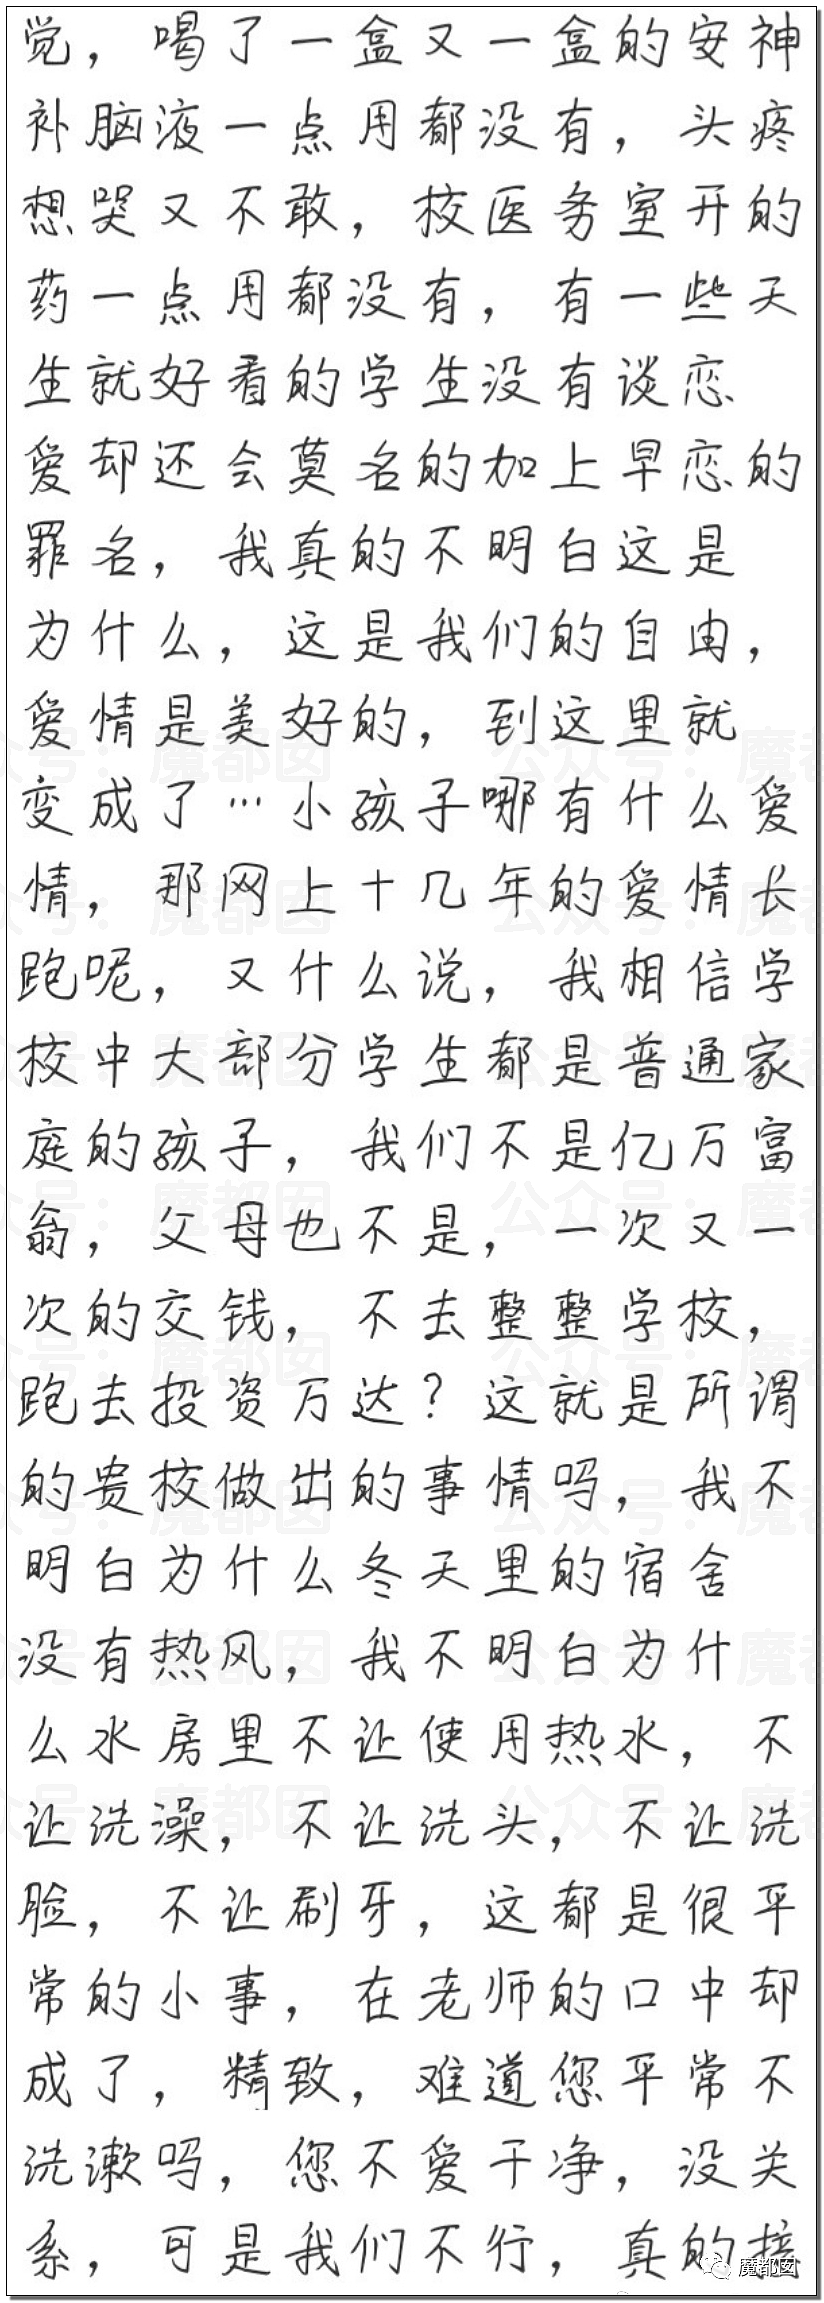 觉，喝了一盒又一盒的安神
补脑液一点用都没有，头疼
想哭又不敢，校医务室开的
药一点用都没有，有一些天
生就好看的学生没有谈恋
爱却还会莫名的加上早恋的
罪名，我真的不明白这是
为什么，这是我们的自由，
爱情是美好的，到这里就
变成了…小孩子哪有什么爱
情，那网上十几年的爱情长
跑呢，又什么说，我相信学
校中大部分学生都是普通家
庭的孩子，我们不是亿万富
翁，父母也不是，一次又一
次的交钱，不去整整学校，
跑去投资万达？这就是所谓
的贵校做出的事情吗，我不
明白为什么冬天里的宿舍
没有热风，我不明白为什
么水房里不让使用热水，不
让洗澡，不让洗头，不让洗
脸，不让刷牙，这都是很平
常的小事，在老师的口中却
成了，精致，难道您平常不
洗漱吗，您不爱干净，没关
系，可是我们不行，真的搞
公众号：魔都囡
魔都囡